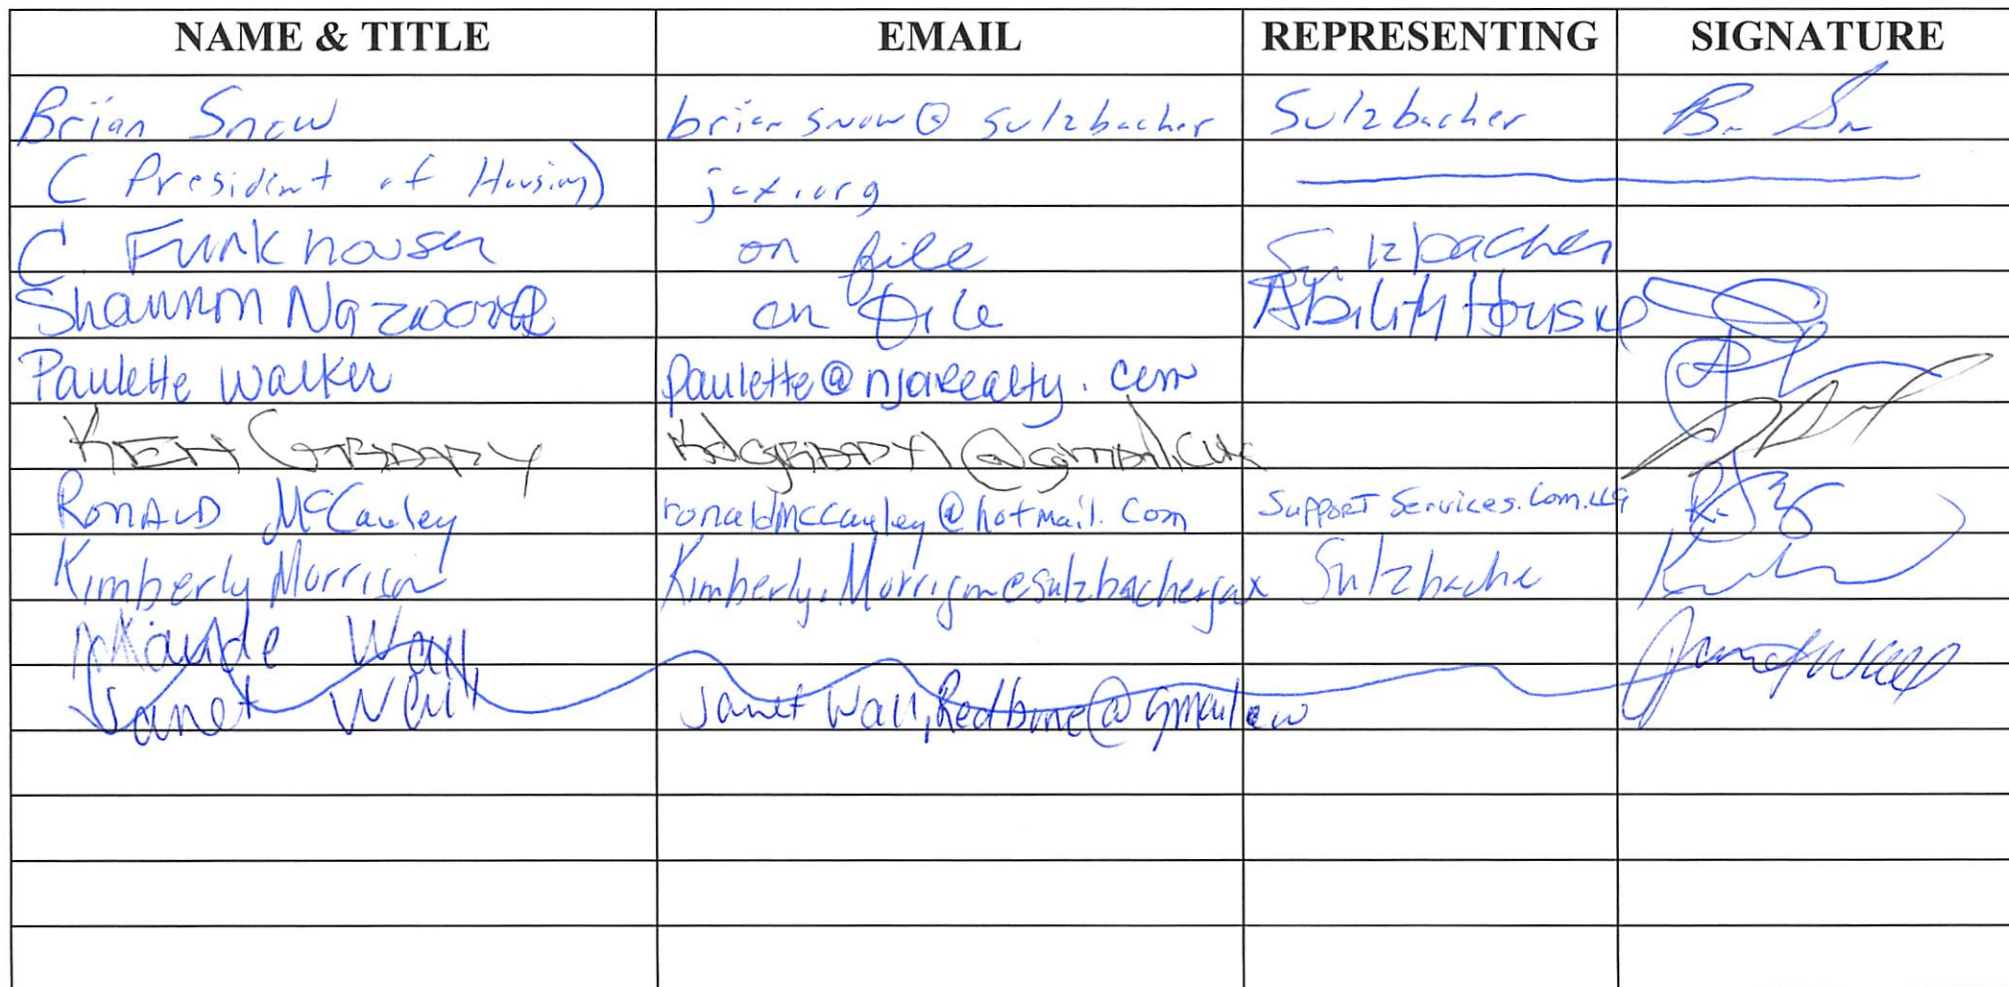 NAME & TITLE EMAIL REPRESENTING SIGNATURE
Brian Snow briansnow@sulzbacher Sulzbacher
(President of Housing) jax.org
C. Funkhouser on file Sulzbacher
Shannon Nazworth on file Ability Housing
Paulette Walker paulette@njarealty.com
KEN GRADDY KdGRADDY1@gmail.com
RONALD McCauley ronaldmccauley@hotmail.com Support Services.Com.LLC
Kimberly Morrison Kimberly.Morrison@sulzbacherjax Sulzbache
Wall
Janet Wall Janet Wall,Redbone@gmail Janet Wall